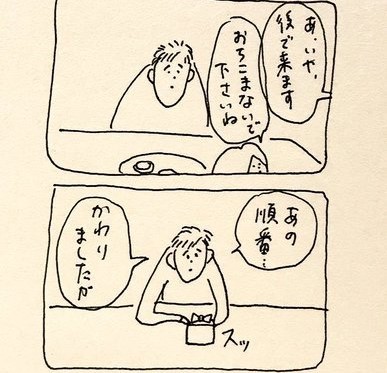 あ、いや、
後で来ます
おちこまないで
下さいね
あの
順番…
かわり
ましたが
スッ